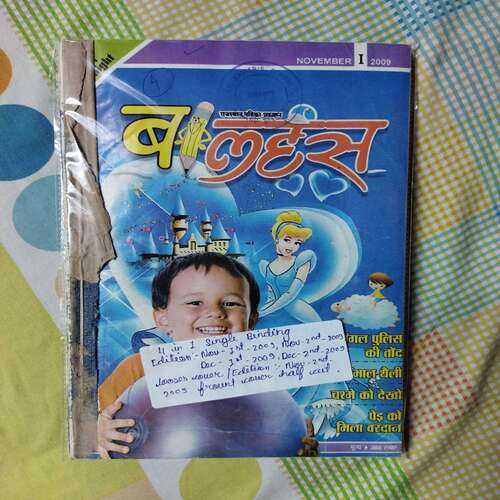 ght
NOVEMBER I 2009
राजस्थान पत्रिका प्रकाशन
बालहंस
4 in 1 Single Binding
Edition:- Nov- 1st- 2009, Nov- 2nd- 2009
Dec- 1st- 2009, Dec- 2nd- 2009
Edition :- Nov- 2nd-
2009 front cover half cut.
गल पुलिस
की तोंद
भाल-थैली
चश्मे को देखो
पेड़ को
मिला वरदान
मूल्य